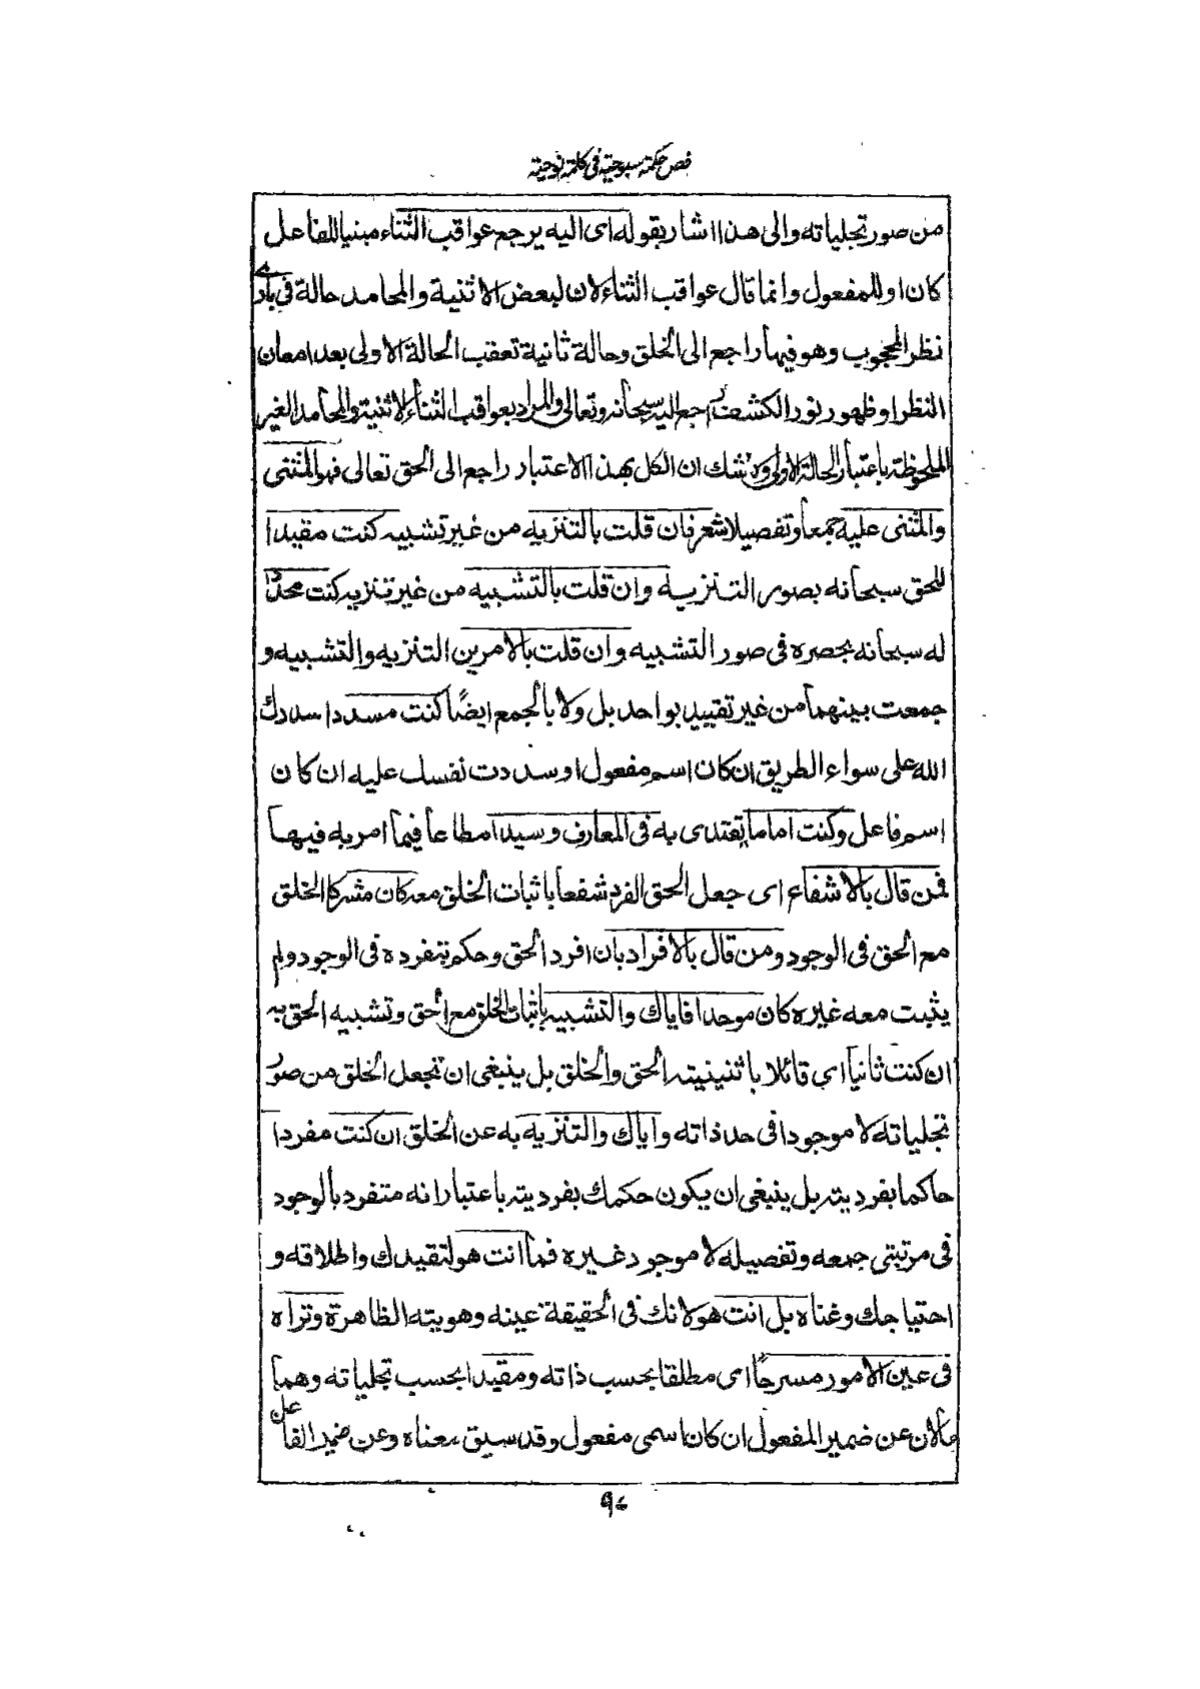 فص حكمة سبوحية فى كلمة نوحية
من صور تجلياته والى هذا اشار بقوله اى اليه يرجع عواقب الثناء مبنيا للفاعل
كان او للمفعول وانما قال عواقب الثناء لان لبعض الاثنية والمحامد حالة فى بادى
نظر المحجوب وهو فيها راجع الى الخلق وحالة ثانية تعقب الحالة الاولى بعد امعان
النظر او ظهور نور الكشف راجع اليه سبحانه وتعالى والمراد بعواقب الثناء الاثنية والمحامد الغير
الملحوظة باعتبار الحالة الاولى ولا شك ان الكل بهذا الاعتبار راجع الى الحق تعالى فهو المثنى
والمثنى عليه جمعا وتفصيلا شعر فان قلت بالتنزيه من غير تشبيه كنت مقيدا
للحق سبحانه بصور التنزيه وان قلت بالتشبيه من غير تنزيه كنت محددا
له سبحانه بحصره فى صور التشبيه وان قلت بالامرين التنزيه والتشبيه و
جمعت بينهما من غير تقييد بواحد بل ولا بالجمع ايضًا كنت مسددا سددك
الله على سواء الطريق ان كان اسم مفعول او سددت نفسك عليه ان كان
اسم فاعل وكنت اماما يقتدى به فى المعارف وسيدا مطاعا فيما امر به فيها
فمن قال بالاشفاع اى جعل الحق الفرد شفعا باثبات الخلق معه كان مشركا الخلق
مع الحق فى الوجود ومن قال بالافراد بان افرد الحق وحكم بتفرده فى الوجود ولم
يثبت معه غيره كان موحدا فاياك والتشبيه باثبات الخلق مع الحق وتشبيه الحق به
ان كنت ثانيا اى قائلا باثنينية الحق والخلق بل ينبغى ان تجعل الخلق من صور
تجلياته لا موجودا فى حد ذاته واياك والتنزيه به عن الخلق ان كنت مفردا
حاكما بفرديته بل ينبغى ان يكون حكمك بفرديته باعتبار انه متفرد بالوجود
فى مرتبتى جمعه وتفصيله لا موجود غيره فما انت هو لتقيدك واطلاقه و
احتياجك وغناه بل انت هو لانك فى الحقيقة عينه وهويته الظاهرة وتراه
فى عين الامور مسرحًا اى مطلقا بحسب ذاته ومقيدا بحسب تجلياته وهما
حالان عن ضمير المفعول ان كانا اسمى مفعول وقد سبق معناه وعن ضمير الفاعل
٩٤